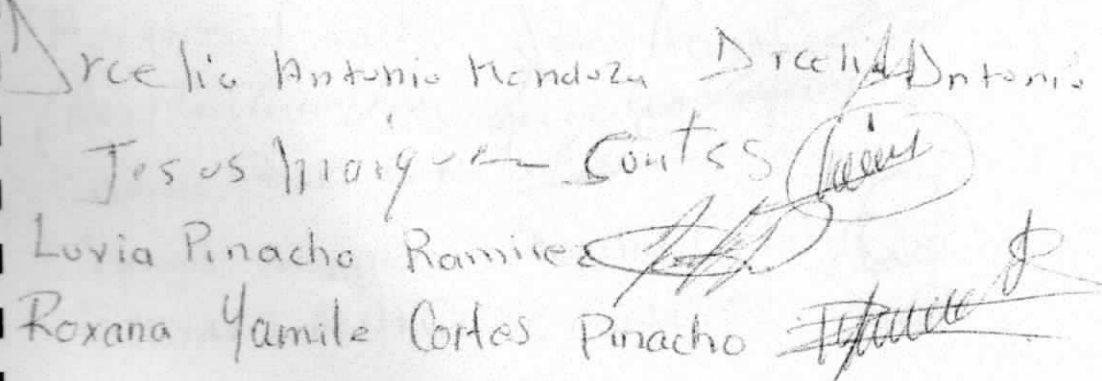 Arcelia Antonio Mendoza Arcelia Antonio
Jesus Marquez Contes
Luvia Pinacho Ramirez
Roxana Yamile Cortes Pinacho